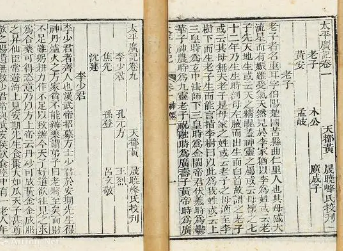 太平廣記卷一
天都黃 晟曉峰氏校刊
老子 木公 廣成子
黃安 孟岐
老子
老子者名重耳字伯陽楚國苦縣曲仁里人也其母感大
流星而有娠雖受氣天然見於李家猶以李為姓或云老
子先天地生或云天之精魄蓋神靈之屬或云母懷之七
十二年乃生生時剖母左腋而出生而白首故謂之老子
或云其母無夫老子是母家之姓或云老子之母適至李
樹下而生老子生而能言指李樹曰以此為我姓或云上
三皇時為玄中法師下三皇時為金闕帝君伏羲時為鬱
華子神農時為九靈老子祝融時為廣壽子黃帝時為廣
太平廣記卷九
天都黃 晟曉峰氏校刊
李少君 孔元方 王烈
焦先 孫登 呂文敬
沈建
李少君
李少君者齊人也漢武帝招募方士少君於安期先生得
神丹爐火之方家貧不能辦藥謂弟子曰老將至矣而財
不足雖躬耕力作不足以致辦今天子好道欲往見之求
為合藥可得恣意乃以方上帝云丹砂可成黃金金成服
之昇仙臣常遊海上見安期先生食棗大如瓜天子甚尊
敬之賜遺無數少君嘗與武安侯飲食座中有一老人年